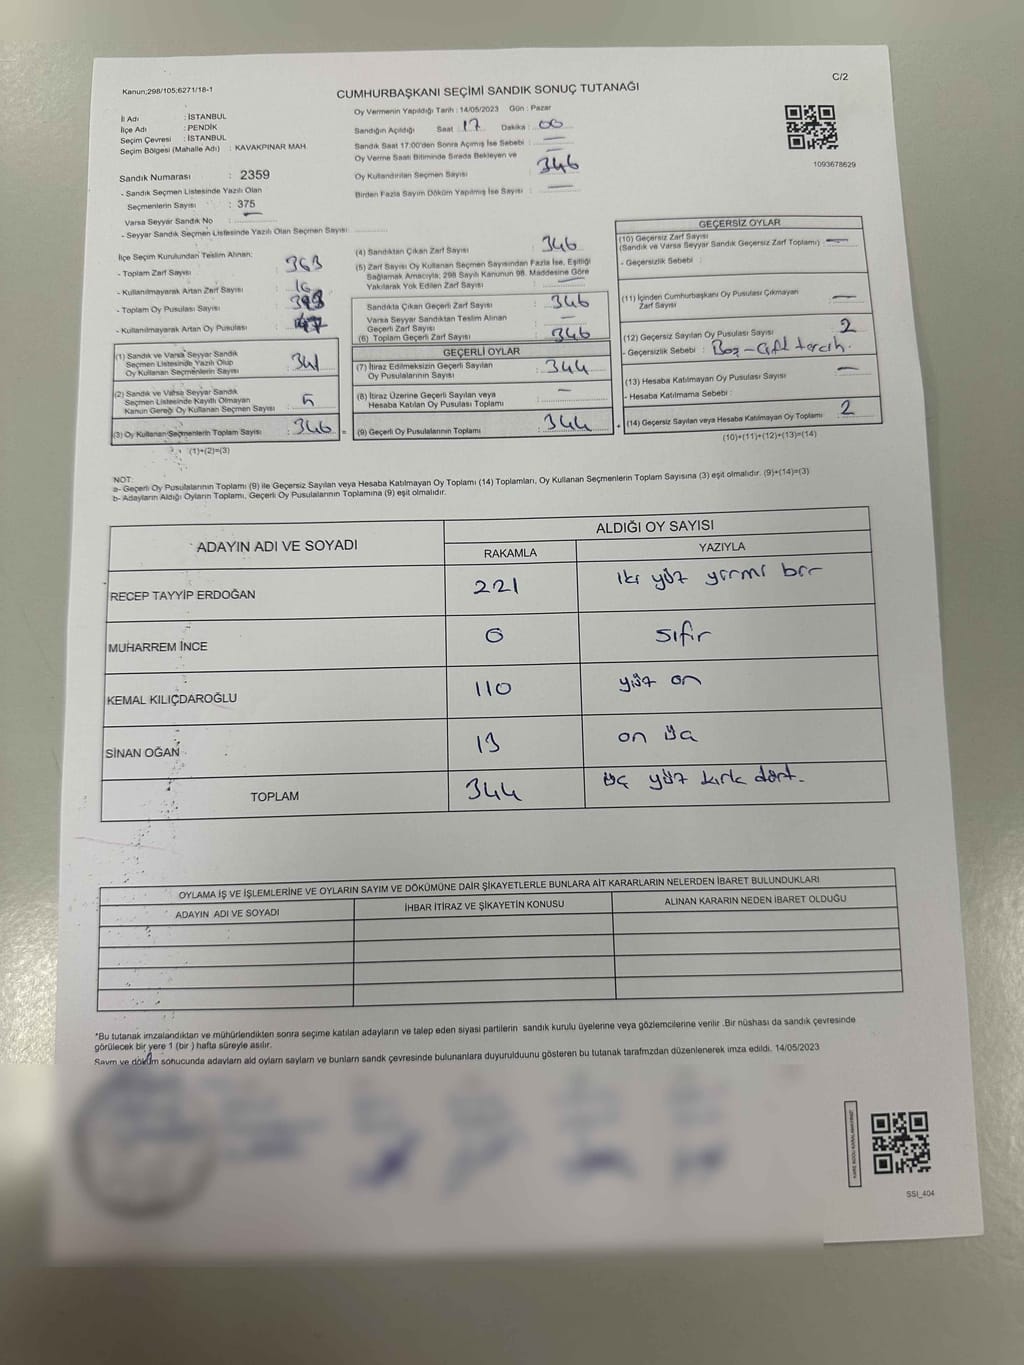 C/2
Kanun;298/105;6271/18-1
CUMHURBAŞKANI SEÇİMİ SANDIK SONUÇ TUTANAĞI
İl Adı : İSTANBUL
İlçe Adı : PENDİK
Seçim Çevresi : İSTANBUL
Seçim Bölgesi (Mahalle Adı) : KAVAKPINAR MAH.
Sandık Numarası : 2359
- Sandık Seçmen Listesinde Yazılı Olan
Seçmenlerin Sayısı : 375
Varsa Seyyar Sandık No :
- Seyyar Sandık Seçmen Listesinde Yazılı Olan Seçmen Sayısı:
Oy Vermenin Yapıldığı Tarih : 14/05/2023 Gün : Pazar
Sandığın Açıldığı Saat : 17 Dakika : 00
Sandık Saat 17:00'den Sonra Açımış İse Sebebi : —
Oy Verme Saati Bitiminde Sırada Bekleyen ve
Oy Kullandırılan Seçmen Sayısı : 346
Birden Fazla Sayım Döküm Yapılmış İse Sayısı : —
1093678629
İlçe Seçim Kurulundan Teslim Alınan:
- Toplam Zarf Sayısı : 363
- Kullanılmayarak Artan Zarf Sayısı :
- Toplam Oy Pusulası Sayısı :
- Kullanılmayarak Artan Oy Pusulası :
(1) Sandık ve Varsa Seyyar Sandık
Seçmen Listesinde Yazılı Olup
Oy Kullanan Seçmenlerin Sayısı : 341
(2) Sandık ve Varsa Seyyar Sandık
Seçmen Listesinde Kayıtlı Olmayan
Kanun Gereği Oy Kullanan Seçmen Sayısı : 5
(3) Oy Kullanan Seçmenlerin Toplam Sayısı : 346 =
(1)+(2)=(3)
(4) Sandıktan Çıkan Zarf Sayısı : 346
(5) Zarf Sayısı Oy Kullanan Seçmen Sayısından Fazla İse, Eşitliği
Sağlamak Amacıyla; 298 Sayılı Kanunun 98. Maddesine Göre
Yakılarak Yok Edilen Zarf Sayısı : —
Sandıkta Çıkan Geçerli Zarf Sayısı : 346
Varsa Seyyar Sandıktan Teslim Alınan
Geçerli Zarf Sayısı : —
(6) Toplam Geçerli Zarf Sayısı : 346
GEÇERLİ OYLAR
(7) İtiraz Edilmeksizin Geçerli Sayılan
Oy Pusulalarının Sayısı : 344
(8) İtiraz Üzerine Geçerli Sayılan veya
Hesaba Katılan Oy Pusulası Toplamı : —
(9) Geçerli Oy Pusulalarının Toplamı : 344 +
GEÇERSİZ OYLAR
(10) Geçersiz Zarf Sayısı
(Sandık ve Varsa Seyyar Sandık Geçersiz Zarf Toplamı) : —
- Geçersizlik Sebebi :
(11) İçinden Cumhurbaşkanı Oy Pusulası Çıkmayan
Zarf Sayısı : —
(12) Geçersiz Sayılan Oy Pusulası Sayısı : 2
- Geçersizlik Sebebi : Boş-Çift tercih.
(13) Hesaba Katılmayan Oy Pusulası Sayısı : —
- Hesaba Katılmama Sebebi :
(14) Geçersiz Sayılan veya Hesaba Katılmayan Oy Toplamı : 2
(10)+(11)+(12)+(13)=(14)
NOT:
a- Geçerli Oy Pusulalarının Toplamı (9) ile Geçersiz Sayılan veya Hesaba Katılmayan Oy Toplamı (14) Toplamları, Oy Kullanan Seçmenlerin Toplam Sayısına (3) eşit olmalıdır. (9)+(14)=(3)
b- Adayların Aldığı Oyların Toplamı, Geçerli Oy Pusulalarının Toplamına (9) eşit olmalıdır.
ADAYIN ADI VE SOYADI
ALDIĞI OY SAYISI
RAKAMLA YAZIYLA
RECEP TAYYİP ERDOĞAN 221 iki yüz yirmi bir
MUHARREM İNCE 0 sıfır
KEMAL KILIÇDAROĞLU 110 yüz on
SİNAN OĞAN 13 on üç
TOPLAM 344 üç yüz kırk dört.
OYLAMA İŞ VE İŞLEMLERİNE VE OYLARIN SAYIM VE DÖKÜMÜNE DAİR ŞİKAYETLERLE BUNLARA AİT KARARLARIN NELERDEN İBARET BULUNDUKLARI
ADAYIN ADI VE SOYADI İHBAR İTİRAZ VE ŞİKAYETİN KONUSU ALINAN KARARIN NEDEN İBARET OLDUĞU
*Bu tutanak imzalandıktan ve mühürlendikten sonra seçime katılan adayların ve talep eden siyasi partilerin sandık kurulu üyelerine veya gözlemcilerine verilir .Bir nüshası da sandık çevresinde
görülecek bir yere 1 (bir ) hafta süreyle asılır.
Sayım ve döküm sonucunda adayların ald oyların sayların ve bunların sandk çevresinde bulunanlara duyurulduunu gösteren bu tutanak tarafmzdan düzenlenerek imza edildi. 14/05/2023
SSI_404